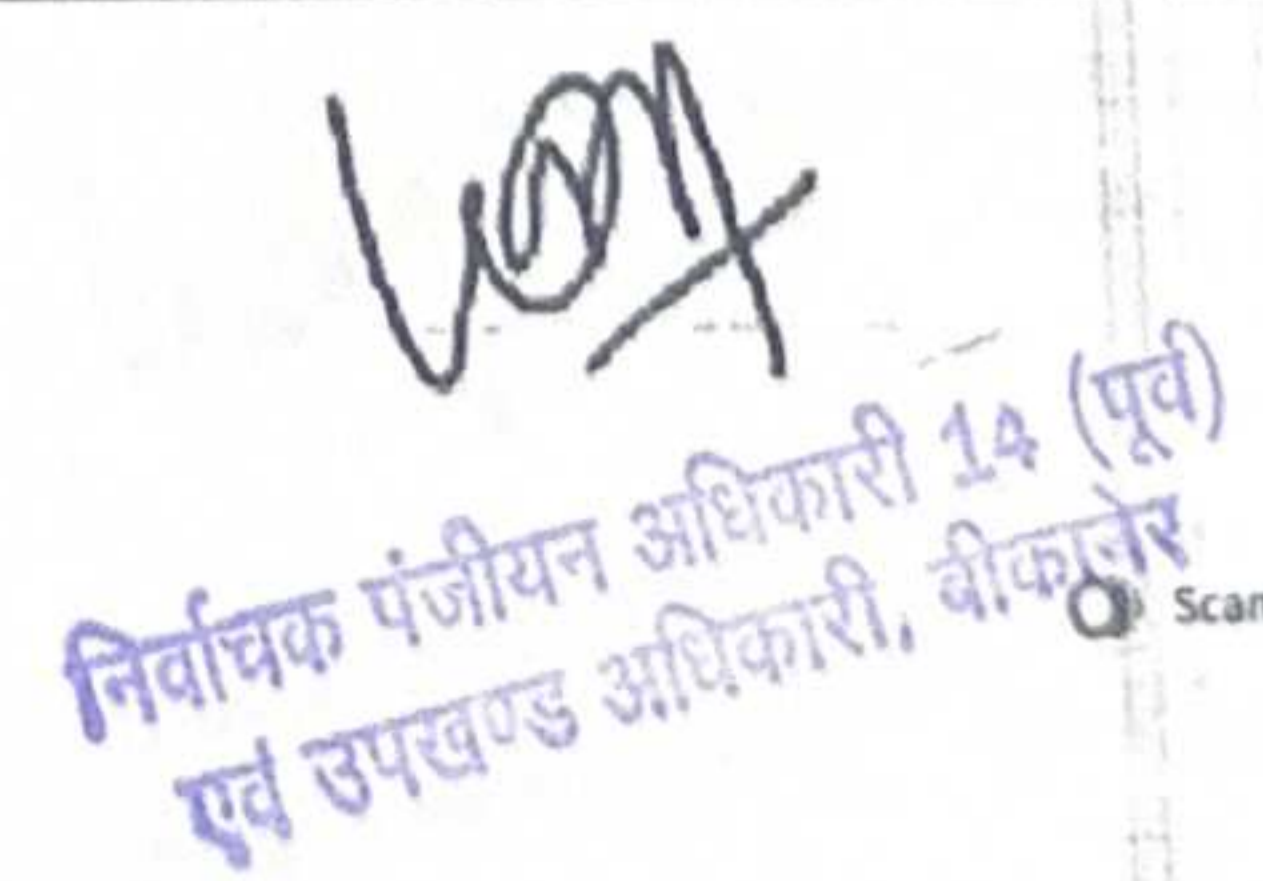 निर्वाचक पंजीयन अधिकारी 14 (पूर्व)
एवं उपखण्ड अधिकारी, बीकानेर
Scan